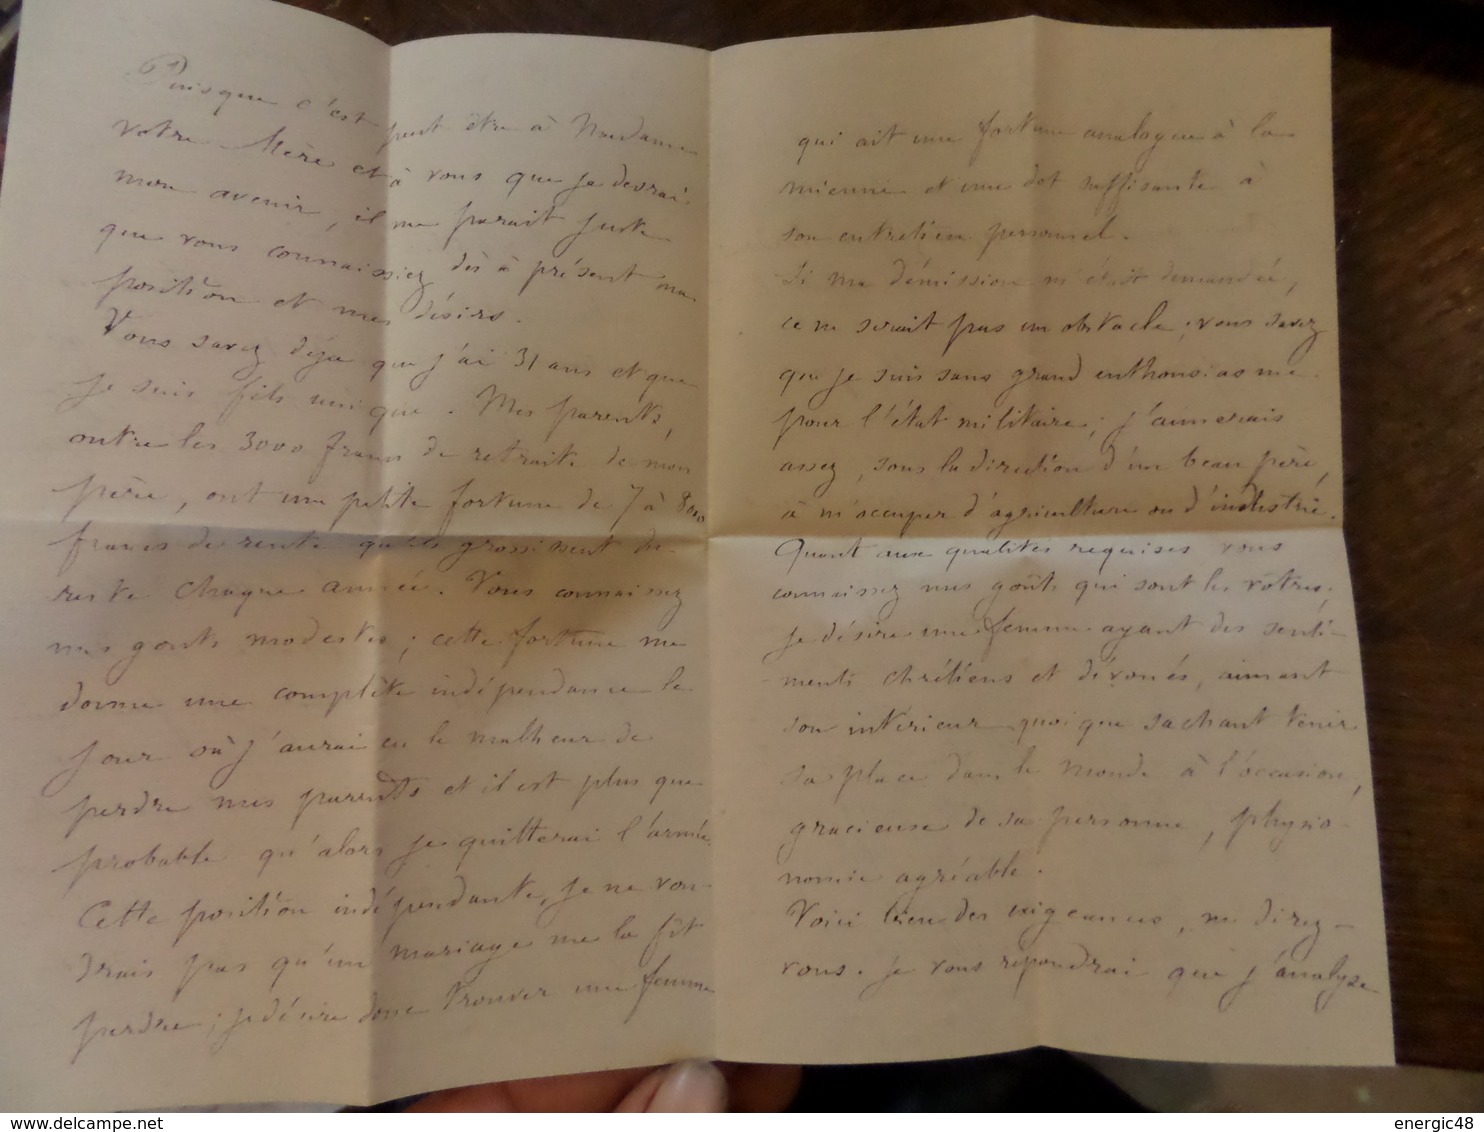 Puisque c'est peut être à Madame
votre Mère et à vous que je devrai
mon avenir, il me parait juste
que vous connaissiez dès à présent ma
position et mes désirs.
Vous savez déjà que j'ai 31 ans et que
je suis fils unique. Mes parents,
outre les 3000 francs de retraite de mon
père, ont une petite fortune de 7 à 8000
francs de rente qu'ils grossissent du
reste chaque année. Vous connaissez
mes goûts modestes; cette fortune me
donne une complète indépendance le
jour où j'aurai eu le malheur de
perdre mes parents et il est plus que
probable qu'alors je quitterai l'armée.
Cette position indépendante, je ne vou-
drais pas qu'un mariage me la fît
perdre; je désire donc trouver une femme
qui ait une fortune analogue à la
mienne et une dot suffisante à
son entretien personnel.
Si ma démission m'était demandée,
ce ne serait pas un obstacle; vous savez
que je suis sans grand enthousiasme
pour l'état militaire; j'aimerais
assez, sous la direction d'un beau père,
à m'occuper d'agriculture ou d'industrie.
Quant aux qualités requises vous
connaissez mes goûts qui sont les vôtres;
je désire une femme ayant des senti-
ments chrétiens et dévoués, aimant
son intérieur quoique sachant tenir
sa place dans le monde à l'occasion,
gracieuse de sa personne, physio-
nomie agréable.
Voici bien des exigeances, me direz-
vous. Je vous répondrai que j'analyse
delcampe.net
energic48